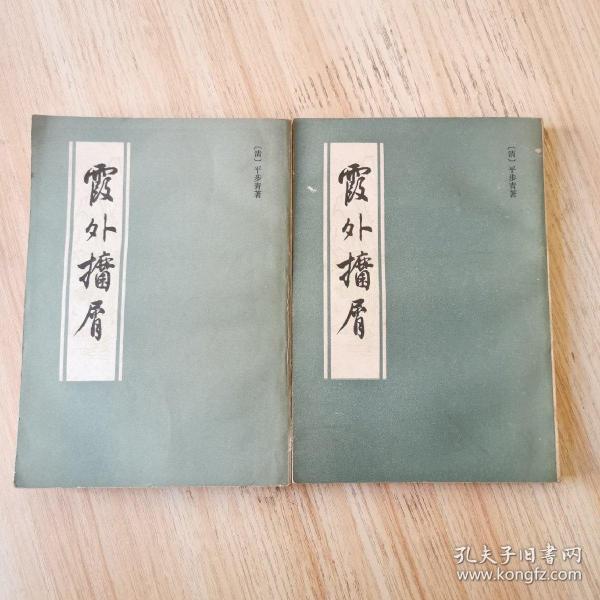 霞外攟屑
〔清〕平步青著
霞外攟屑
〔清〕平步青著
孔夫子旧书网
www.kongfz.com